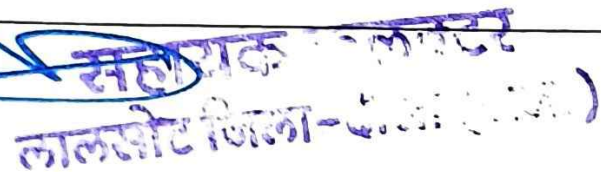 सहायक कलक्टर
लालसोट जिला-